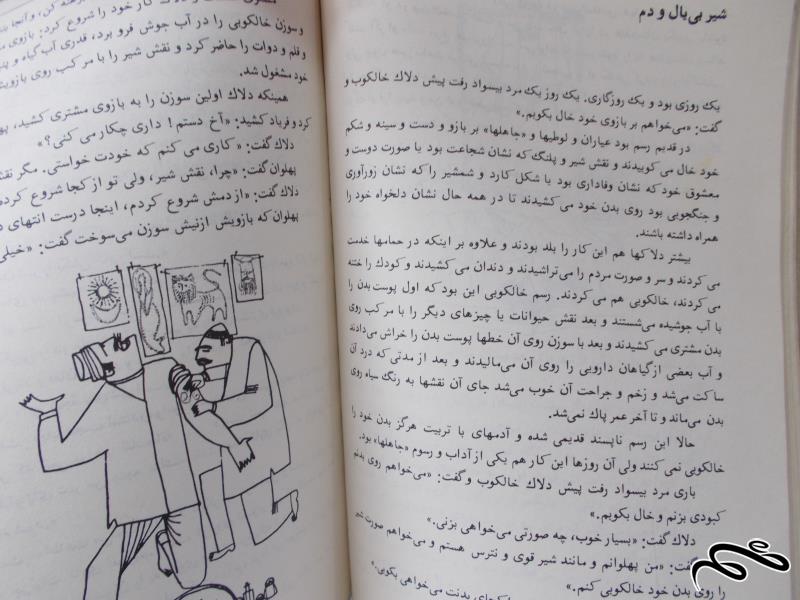 شیر بی‌یال و دم
یک روزی بود و یک روزگاری. یک روز یک مرد بیسواد رفت پیش دلاک خالکوب و
گفت: «می‌خواهم بر بازوی خود خال بکوبم.»
در قدیم رسم بود عیاران و لوطیها و «جاهلها» بر بازو و دست و سینه و شکم
خود خال می کوبیدند و نقش شیر و پلنگ که نشان شجاعت بود یا صورت دوست و
معشوق خود که نشان وفاداری بود یا شکل کارد و شمشیر را که نشان زورآوری
و جنگجویی بود روی بدن خود می کشیدند تا در همه حال نشان دلخواه خود را
همراه داشته باشند.
بیشتر دلاکها هم این کار را بلد بودند و علاوه بر اینکه در حمامها خدمت
می کردند و سر و صورت مردم را می‌تراشیدند و دندان می کشیدند و کودک را ختنه
می کردند، خالکوبی هم می کردند. رسم خالکوبی این بود که اول پوست بدن را
با آب جوشیده می‌شستند و بعد نقش حیوانات یا چیزهای دیگر را با مرکب روی
بدن مشتری می کشیدند و بعد با سوزن روی آن خطها پوست بدن را خراش می‌دادند
و آب بعضی از گیاهان دارویی را روی آن می‌مالیدند و بعد از مدتی که درد آن
ساکت می‌شد و زخم و جراحت آن خوب می‌شد جای آن نقشها به رنگ سیاه روی
بدن می‌ماند و تا آخر عمر پاک نمی‌شد.
حالا این رسم ناپسند قدیمی شده و آدمهای با تربیت هرگز بدن خود را
خالکوبی نمی کنند ولی آن روزها این کار هم یکی از آداب و رسوم «جاهلها» بود.
باری مرد بیسواد رفت پیش دلاک خالکوب و گفت: «می‌خواهم روی بدنم
کبودی بزنم و خال بکوبم.»
دلاک گفت: «بسیار خوب، چه صورتی می‌خواهی بزنی.»
گفت: «من پهلوانم و مانند شیر قوی و نترس هستم و می‌خواهم صورت شیر
را روی بدن خود خالکوبی کنم.»
بدنت می‌خواهی بکوبی.»
کار خود را شروع کرد:
و سوزن خالکوبی را در آب جوش فرو برد، قدری آب گیاه و
و قلم و دوات را حاضر کرد و نقش شیر را با مرکب روی بازویش
خود مشغول شد.
همینکه دلاک اولین سوزن را به بازوی مشتری کشید،
کرد و فریاد کشید: «آخ دستم! داری چکار می کنی؟»
دلاک گفت: «کاری می کنم که خودت خواستی. مگر
پهلوان گفت: «چرا، نقش شیر، ولی تو از کجا شروع کرده
دلاک گفت: «از دمش شروع کردم، اینجا درست انتهای
پهلوان که بازویش از نیش سوزن می‌سوخت گفت: «خیلی